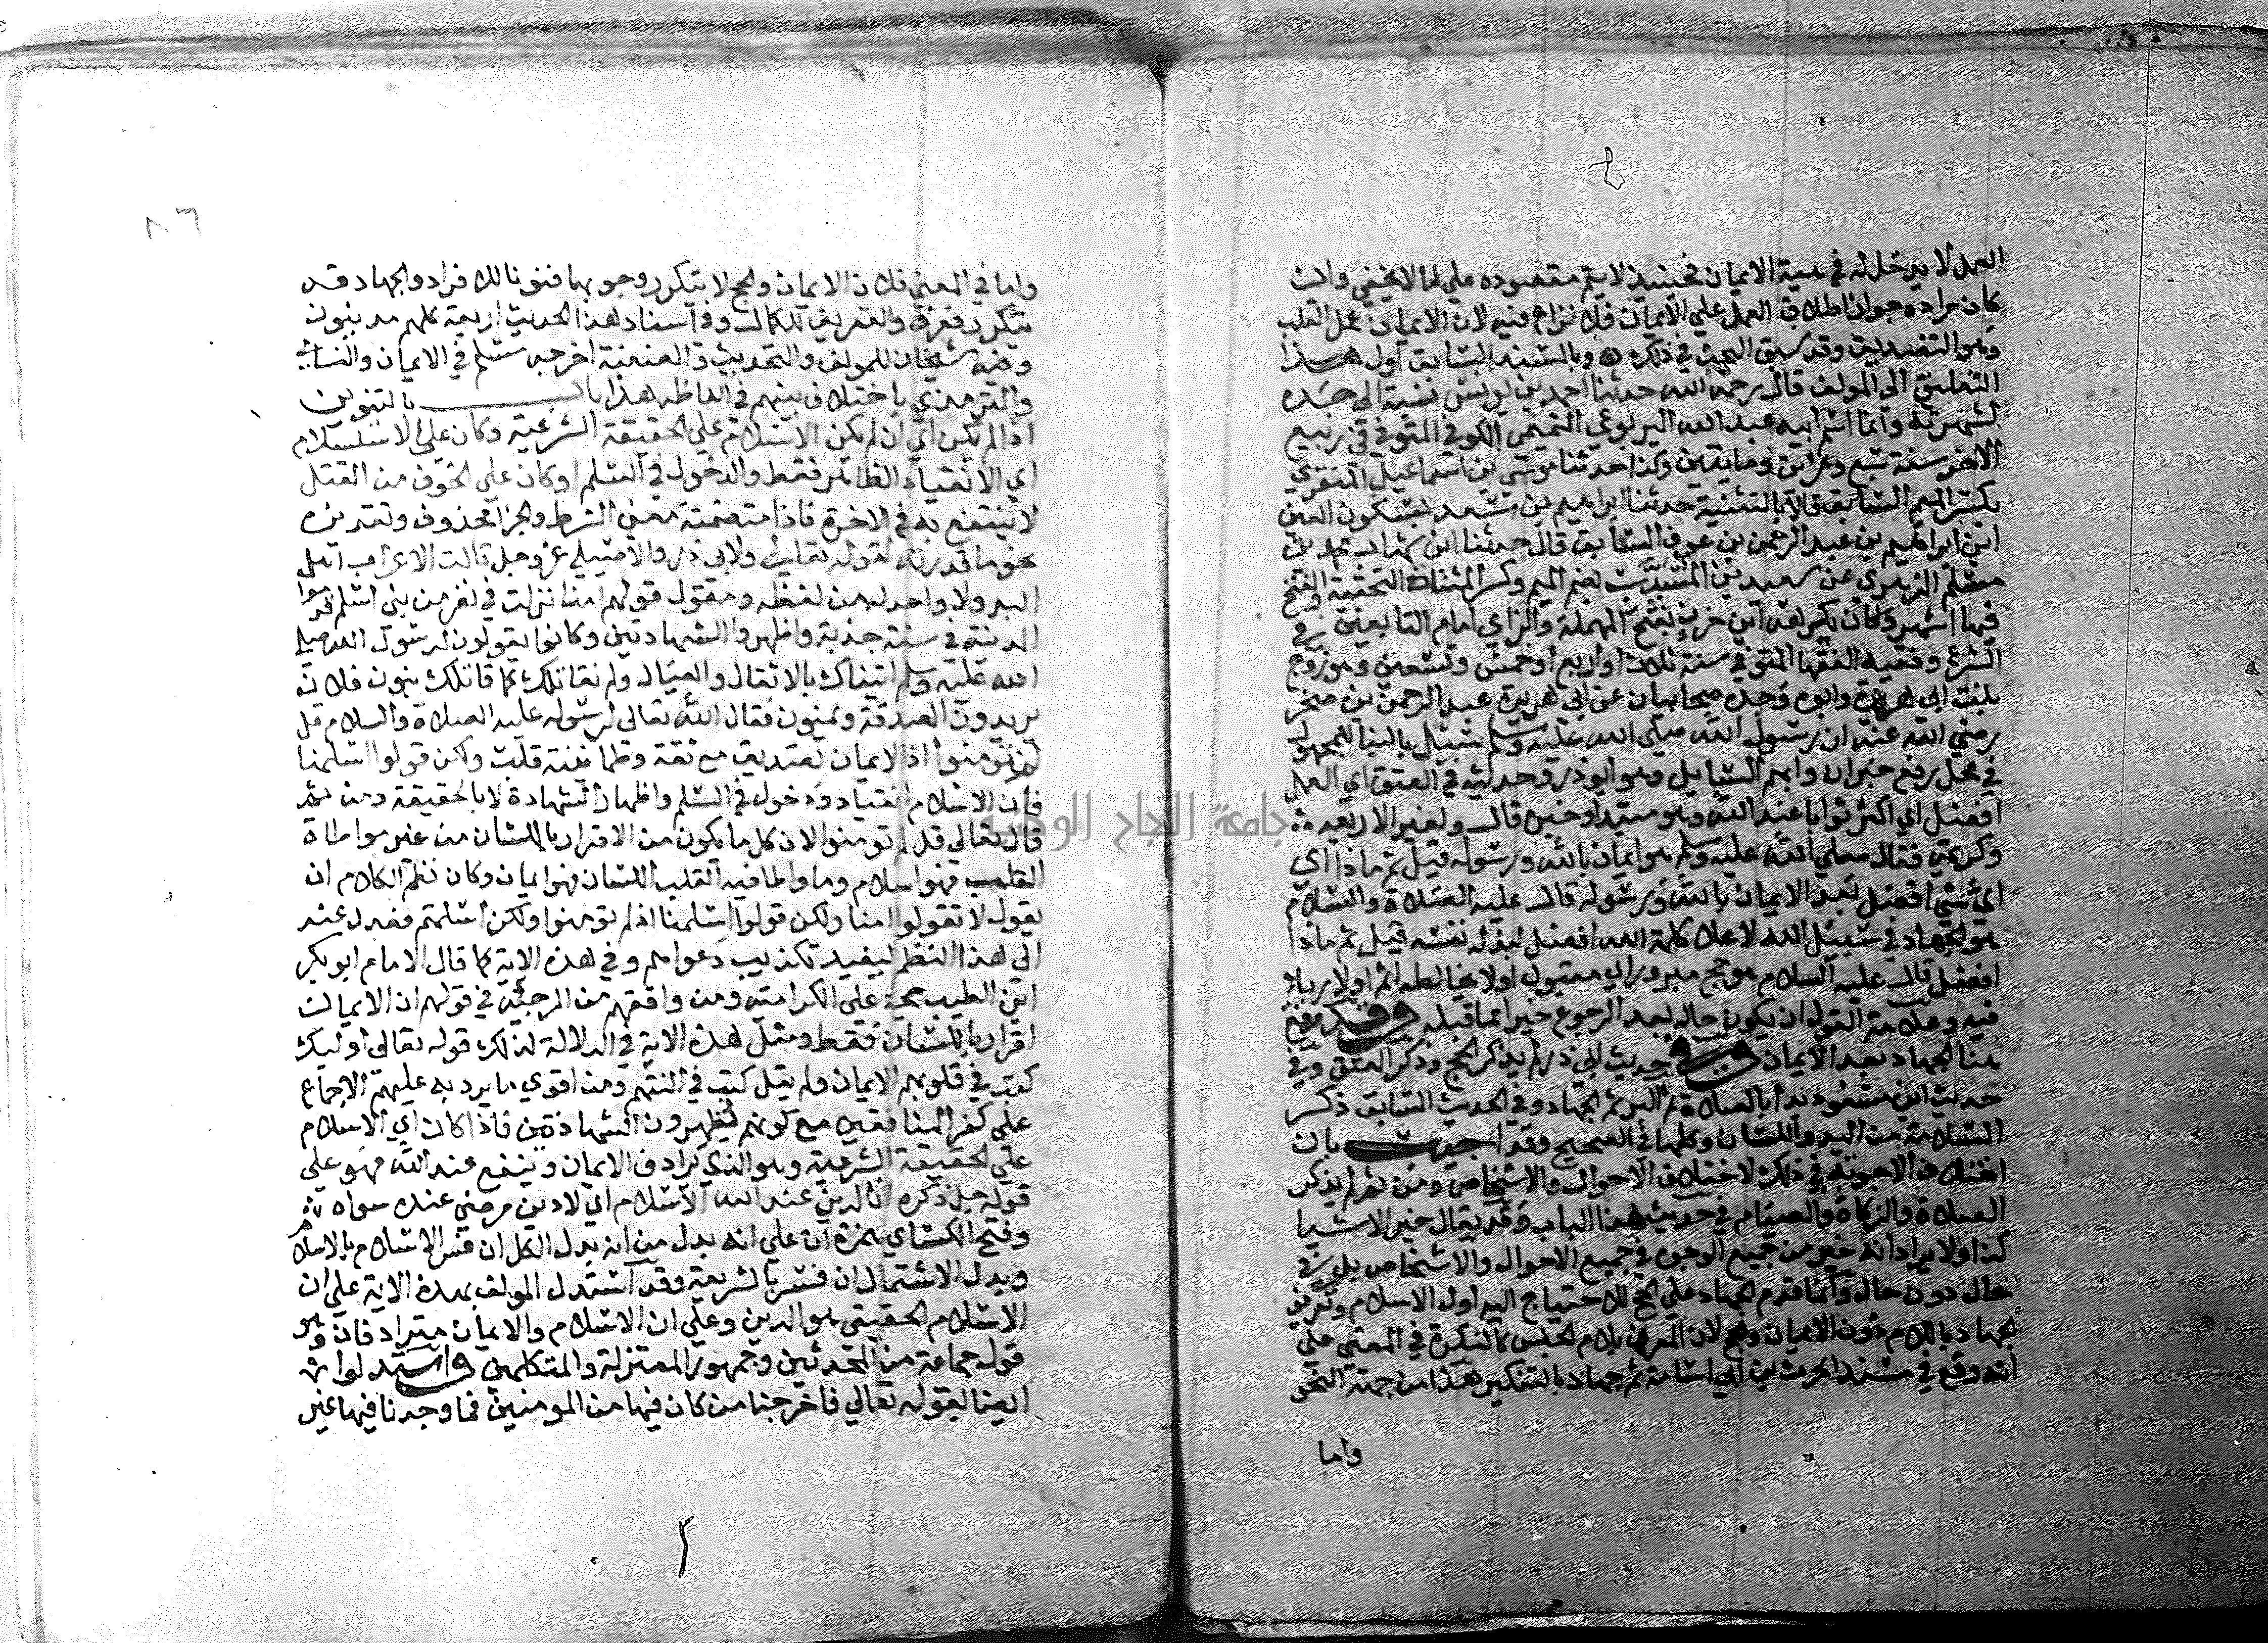 العمل لا يدخل له في مسية الايمان فحينيذ لا يتم مقصوده علي ما لا يخفي وان
كان مراده جواز اطلاق العمل علي الايمان فلا نزاع فيه لان الايمان عمل القلب
وهو التصديق وقد سبق البحث في ذلك وبالسند السابق اول هذا
التعليق الي المولف قال رحمه الله حدثنا احمد بن يونس نسبة الي جده
لشهرته وانما اسم ابيه عبد الله اليربوعي التميمي الكوفي المتوفي في ربيع
الاخر سنة سبع وعشرين ومايتين وكذا حدثنا موسي بن اسماعيل المنقري
بكسر الميم السابق قالا بالتثنية حدثنا ابراهيم بن سعد بسكون العين
ابن ابراهيم بن عبد الرحمن بن عوف السابق قال حدثنا ابن شهاب محمد بن
مسلم الزهري عن سعيد بن المسيب بضم الميم وكسر المثناة التحتية والفتح
فيها اشهر وكان يكره ابن حزن بفتح المهملة والزاي امام التابعين في
الشرع وفقيه الفقها المتوفي سنة ثلاث او اربع او خمس وتسعين وهو زوج
بنت ابي هريرة وابوه وجده صحابيان عن ابي هريرة عبد الرحمن بن صخر
رضي الله عنه ان رسول الله صلي الله عليه وسلم سيل بالبنا للمجهول
في محل رفع خبر ان وابهم السايل وهو ابو ذر وحديثه في العتق اي العمل
افضل اي اكثر ثوابا عند الله وهو مبتدا وخبر قال ولغير الاربعة
وكريمة فقال صلي الله عليه وسلم هو ايمان بالله ورسوله قيل ثم ماذا اي
اي شي افضل بعد الايمان بالله ورسوله قال عليه الصلاة والسلام
هو الجهاد في سبيل الله لاعلا كلمة الله افضل لبذله نفسه قيل ثم ماذا
افضل قال عليه السلام هو حج مبرور اي مقبول او لا يخالطه اثم او لا رياء
فيه وعلامة القبول ان يكون حاله بعد الرجوع خيرا مما قبله وقد وقع
هنا الجهاد بعد الايمان وفي حديث ابي ذر لم يذكر الحج وذكر العتق وفي
حديث ابن مسعود بدا بالصلاة ثم البر ثم الجهاد وفي الحديث السابق ذكر
السلامة من اليد واللسان وكلها في الصحيح وقد اجيب بان
اختلاف الاجوبة في ذلك لاختلاف الاحوال والاشخاص ومن ثم لم يذكر
الصلاة والزكاة والصيام في حديث هذا الباب وقد يقال خير الاشيا
كذا ولا يراد انه خير من جميع الوجوه في جميع الاحوال والاشخاص بل في
حال دون حال وانما قدم الجهاد علي الحج للاحتياج اليه اول الاسلام وتعريف
الجهاد باللام دون الايمان والحج لان المعرف بلام الجنس كالنكرة في المعني علي
انه وقع في مسند الحرث بن ابي اسامة ثم جهاد بالتنكير هذا من جهة النحو
واما
٨٦
واما في المعني فلان الايمان والحج لا يتكرر وجوبهما فنونا للافراد والجهاد قد
يتكرر فعرف والتعريف للكمال وفي اسناد هذا الحديث اربعة كلهم مدنيون
وفيه شيخان للمولف والتحديث والعنعنة اخرجه مسلم في الايمان والنساي
والترمذي باختلاف بينهم في الفاظه هذا باب بالتنوين
اذا لم يكن اي ان لم يكن الاسلام علي الحقيقة الشرعية وكان علي الاستسلام
اي الانقياد الظاهر فقط والدخول في السلم او كان علي الخوف من القتل
لا ينتفع به في الاخرة فاذا متضمنة معني الشرط والجزا محذوف وتقديره
نحو ما قدرته لقوله تعالي ولابي ذر والاصيلي عز وجل قالت الاعراب اهل
البدو ولا واحد له من لفظه ومقول قولهم امنا نزلت في نفر من بني اسد قدموا
المدينة في سنة جدبة واظهروا الشهادتين وكانوا يقولون لرسول الله صلي
الله عليه وسلم اتيناك بالاثقال والعيال ولم نقاتلك كما قاتلك بنون فلان
يريدون الصدقة ويمنون فقال الله تعالي لرسوله عليه الصلاة والسلام قل
لم تومنوا اذ الايمان تصديق مع ثقة وطمانينة قلب ولكن قولوا اسلمنا
فان الاسلام انقياد ودخول في السلم واظهار الشهادة لا بالحقيقة ومن ثم
قال تعالي قل لم تومنوا لان كل ما يكون من الاقرار باللسان من غير مواطاة
القلب فهو اسلام وما واطا فيه القلب اللسان فهو ايمان وكان نظم الكلام ان
يقول لا تقولوا امنا ولكن قولوا اسلمنا اذ لم تومنوا ولكن اسلمتم فعدل عنه
الي هذا النظم ليفيد تكذيب دعواهم وفي هذه الاية كما قال الامام ابو بكر
ابن الطيب حجة علي الكرامية ومن وافقهم من المرجئة في قولهم ان الايمان
اقرار باللسان فقط ومثل هذه الاية في الدلالة لذلك قوله تعالي اوليك
كتب في قلوبهم الايمان ولم يقل كتب في السنتهم ومن اقوي ما يرد به عليهم الاجماع
علي كفر المنافقين مع كونهم يظهرون الشهادتين فاذا كان اي الاسلام
علي الحقيقة الشرعية وهو الذي يرادف الايمان وينفع عند الله فهو علي
قوله جل ذكره ان الدين عند الله الاسلام اي لا دين مرضي عنده سواه
وفتح الكساي همزة ان علي انه بدل من انه بدل الكل ان فسر الاسلام بالاسلام
وبدل الاشتمال ان فسر بالشريعة وقد استدل المولف بهذه الاية علي ان
الاسلام الحقيقي هو الدين وعلي ان الاسلام والايمان مترادفان وهو
قول جماعة من المحدثين وجمهور المعتزلة والمتكلمين واستدلوا
ايضا بقوله تعالي فاخرجنا من كان فيها من المومنين فما وجدنا فيها غير
جامعة النجاح الوطنية